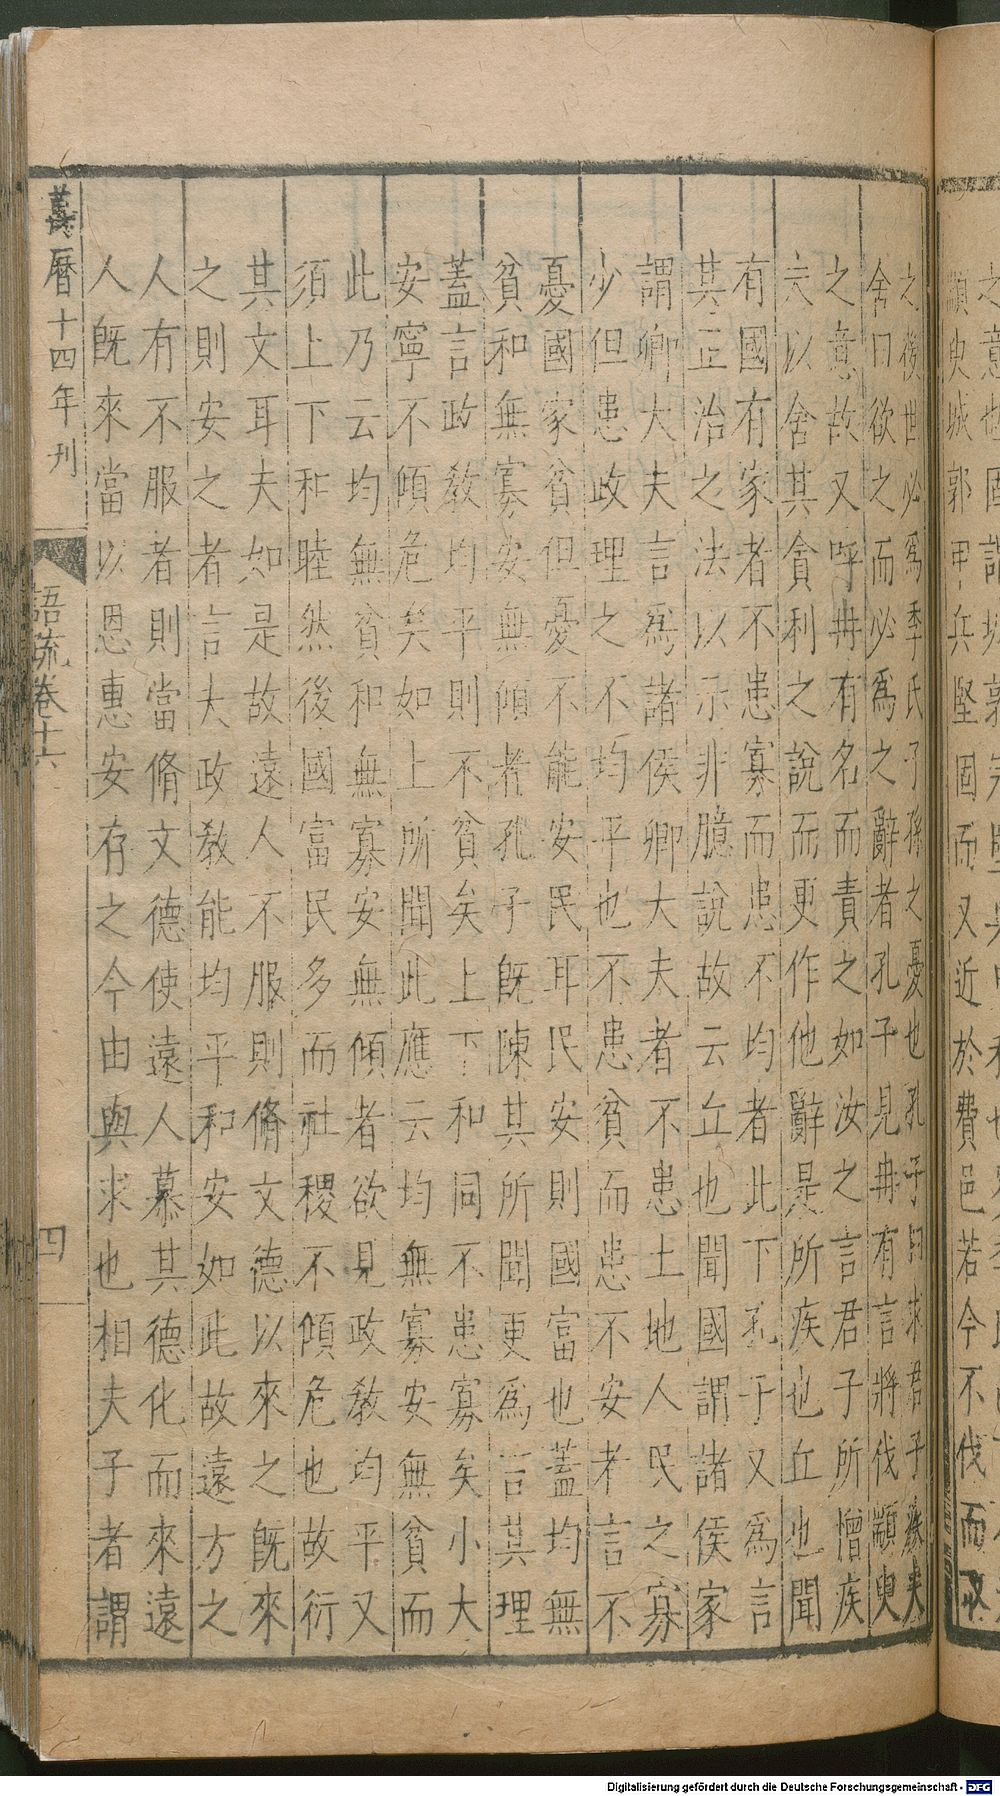 顓臾城郭甲兵堅固而又近於費邑若今不伐而取
之後世必爲季氏子孫之憂也孔子曰求君子疾夫
舍曰欲之而必爲之辭者孔子見冉有言將伐顓臾
之意故又呼冉有名而責之如汝之言君子所憎疾
夫以舍其貪利之說而更作他辭是所疾也丘也聞
有國有家者不患寡而患不均者此下孔子又爲言
其正治之法以示非臆說故云丘也聞國謂諸侯家
謂卿大夫言爲諸侯卿大夫者不患土地人民之寡
少但患政理之不均平也不患貧而患不安者言不
憂國家貧但憂不能安民耳民安則國富也蓋均無
貧和無寡安無傾者孔子旣陳其所聞更爲言其理
蓋言政教均平則不貧矣上下和同不患寡矣小大
安寧不傾危矣如上所聞此應云均無寡安無貧而
此乃云均無貧和無寡安無傾者欲見政教均平又
須上下和睦然後國富民多而社稷不傾危也故衍
其文耳夫如是故遠人不服則脩文德以來之旣來
之則安之者言夫政教能均平和安如此故遠方之
人有不服者則當脩文德使遠人慕其德化而來遠
人旣來當以恩惠安存之今由與求也相夫子者謂
萬曆十四年刊
語疏卷十六
四
Digitalisierung gefördert durch die Deutsche Forschungsgemeinschaft - DFG